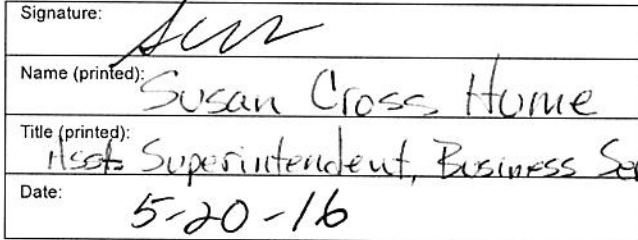 Signature:
Name (printed): Susan Cross Hume
Title (printed): Asst. Superintendent, Business Ser
Date: 5-20-16